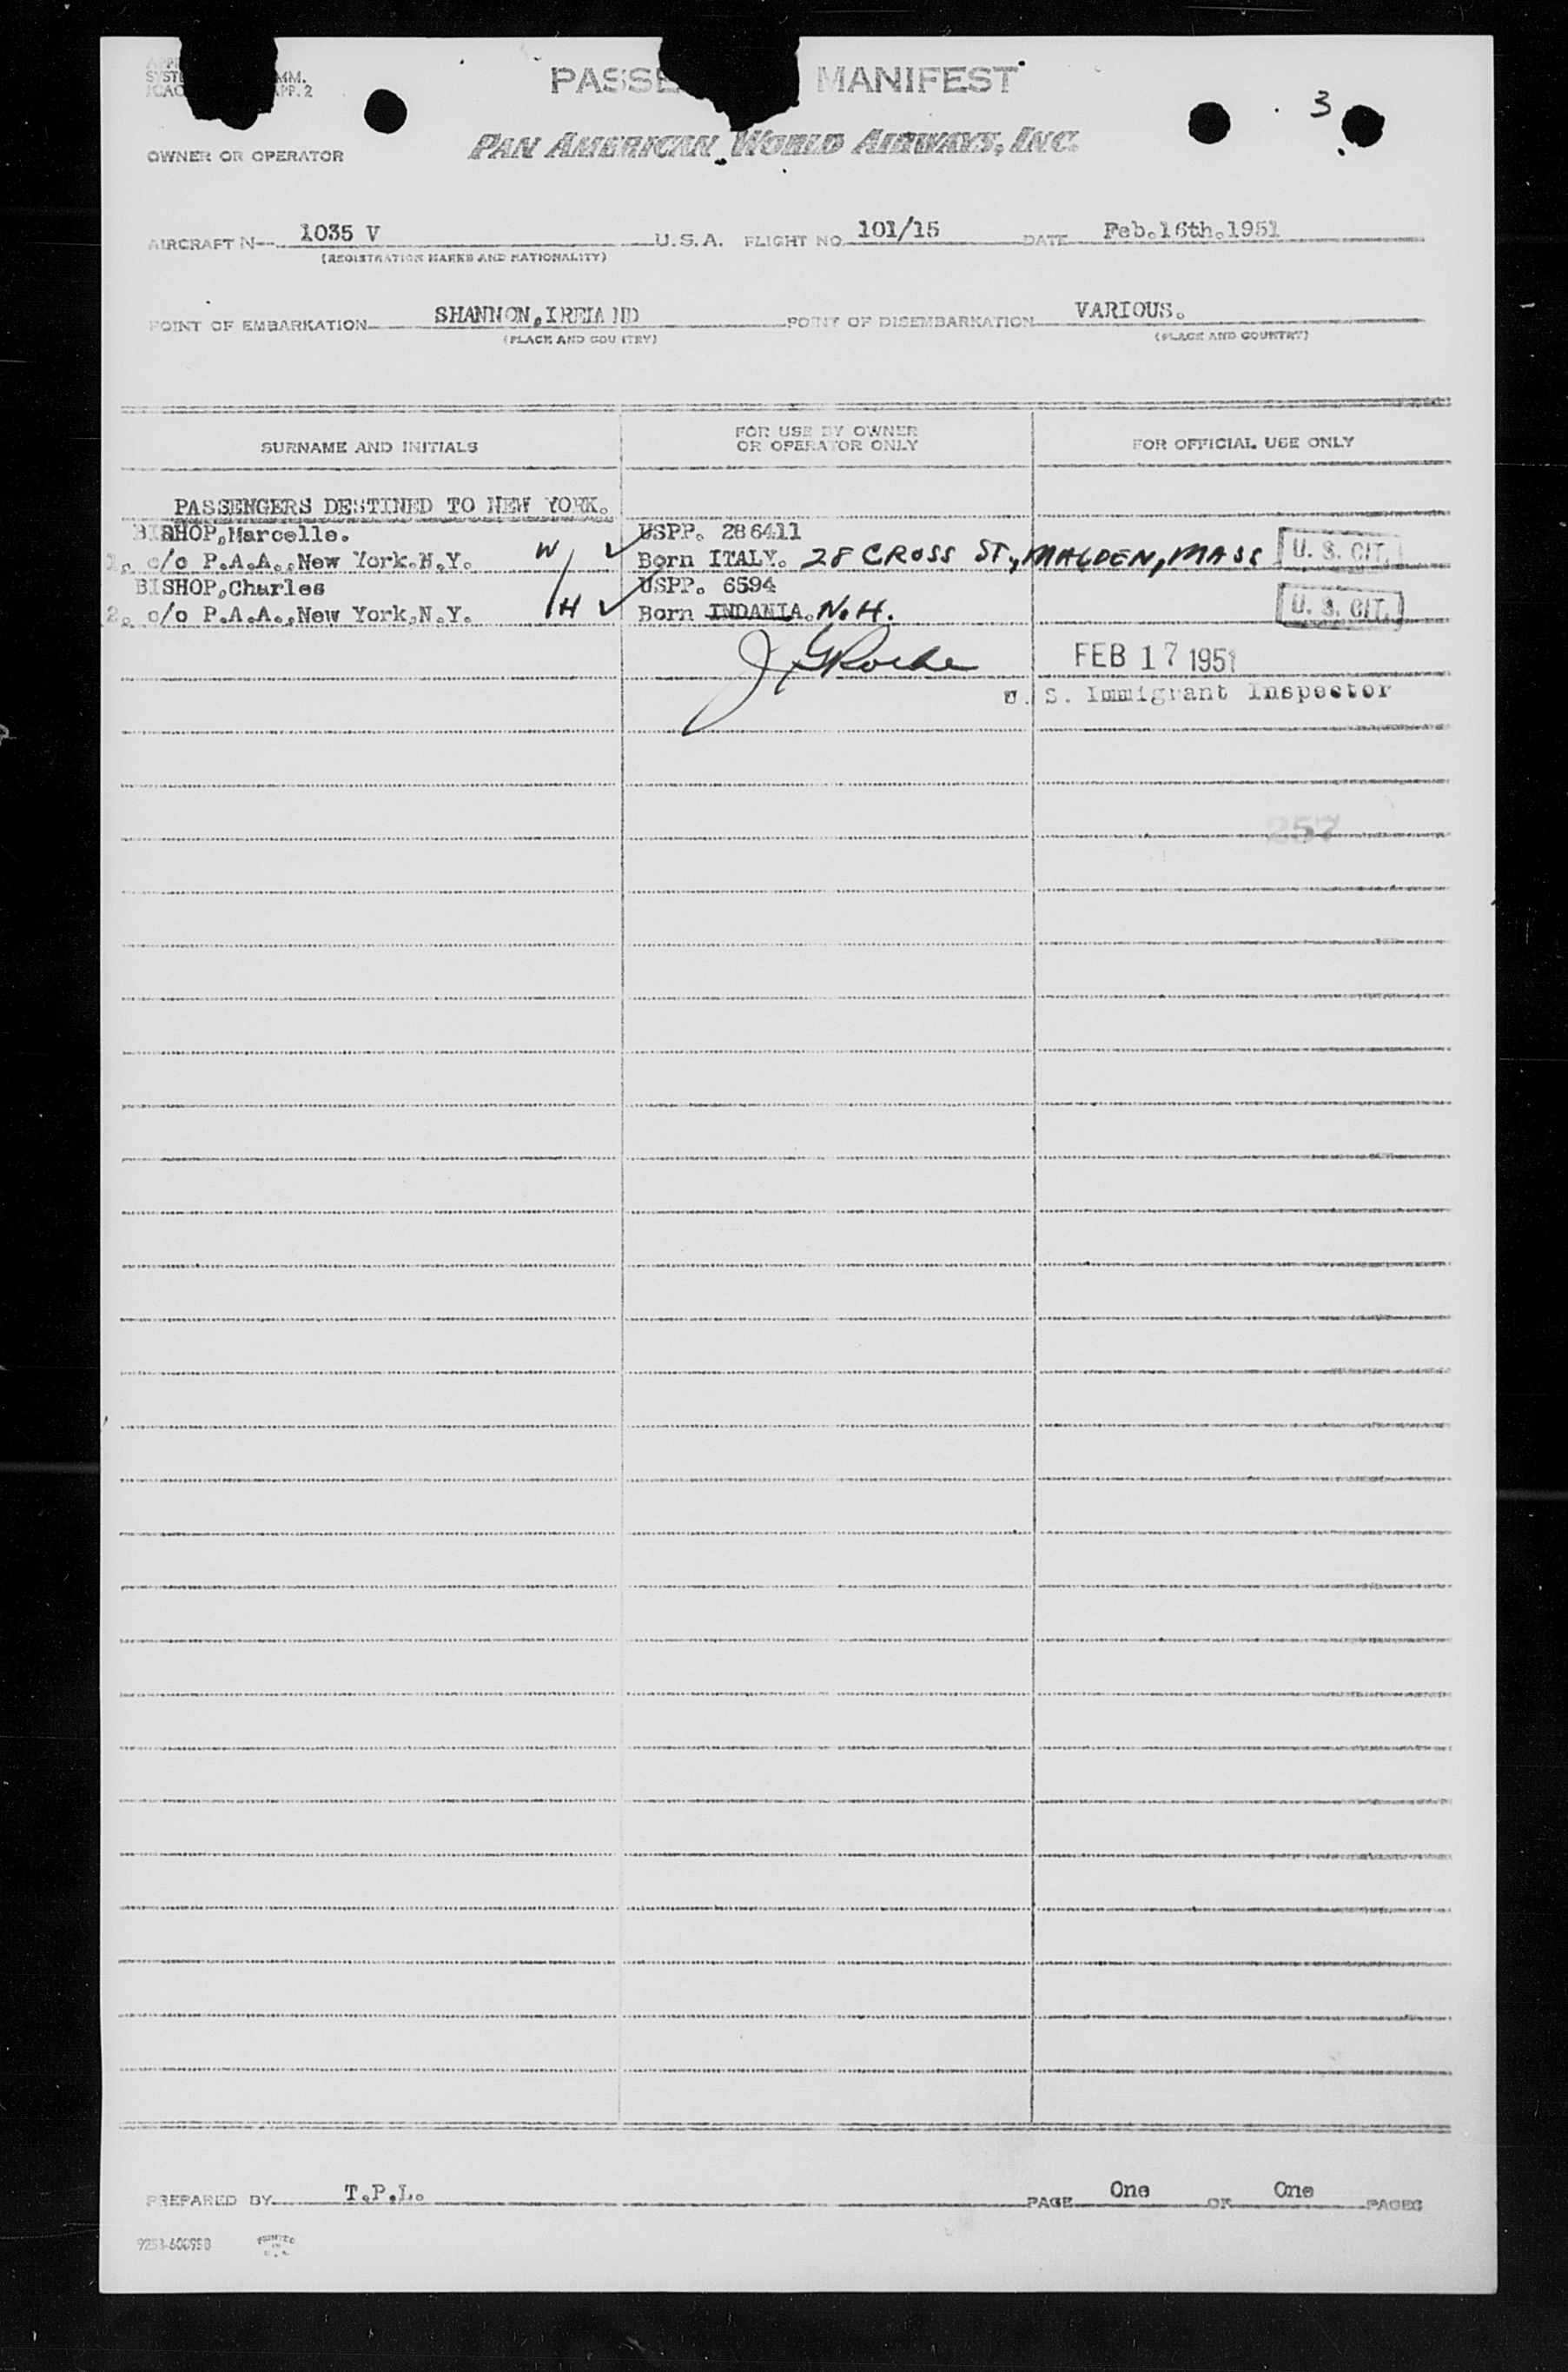 MM.
APP. 2
MANIFEST
3
OWNER OR OPERATOR
PAN AMERICAN WORLD AIRWAYS, INC.
AIRCRAFT N 1035 V U.S.A. FLIGHT NO. 101/15 DATE Feb.16th.1951
(REGISTRATION MARKS AND NATIONALITY)
POINT OF EMBARKATION SHANNON,IRELAND POINT OF DISEMBARKATION VARIOUS.
(PLACE AND COUNTRY) (PLACE AND COUNTRY)
SURNAME AND INITIALS FOR USE BY OWNER OR OPERATOR ONLY FOR OFFICIAL USE ONLY
PASSENGERS DESTINED TO NEW YORK.
BISHOP,Marcelle. USPP. 286411
1. c/o P.A.A.,New York.N.Y. W Born ITALY. 28 CROSS ST., MALDEN, MASS U. S. CIT.
BISHOP,Charles USPP. 6594
2. c/o P.A.A.,New York,N.Y. H Born INDANIA. N.H. U. S. CIT.
FEB 17 1951
U. S. Immigrant Inspector
257
PREPARED BY T.P.L. PAGE One OF One PAGES
PRINTED
IN